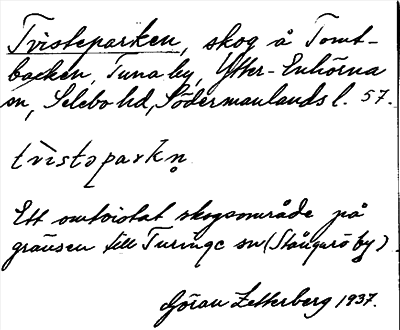 Tvisteparken, skog å Tomt-
backen, Tuna by, Ytter-Enhörna
sn, Selebo hd, Södermanlands l. 57.
tvìstəparkn̥
Ett omtvistat skogsområde på
gränsen till Turinge sn (Stångarö by)
Göran Zetterberg 1937.